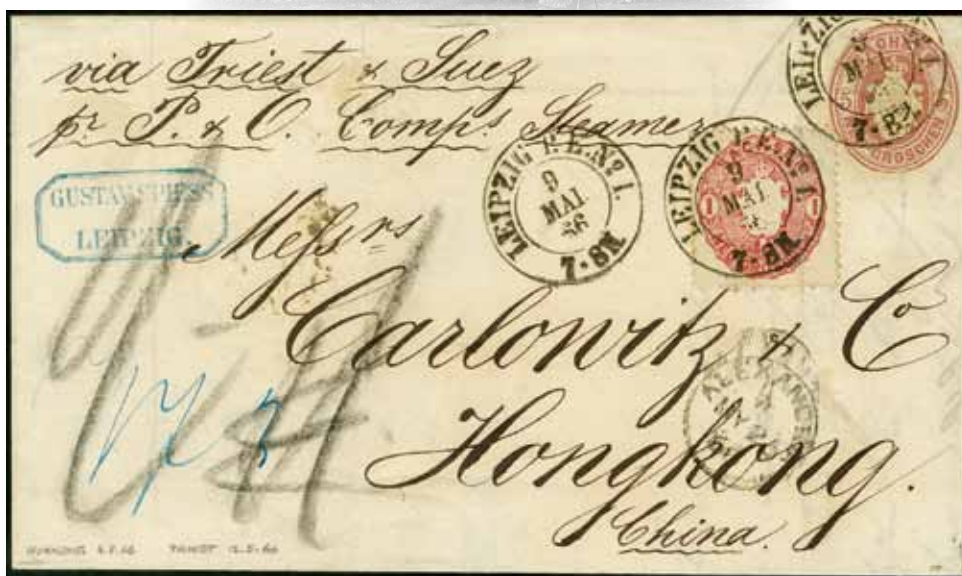 via Triest & Suez
pr P. & O. Comps. Steamer
GUSTAV SPIESS
LEIPZIG
LEIPZIG P.E.No 1.
9
MAI
66
7-8N
LEIPZIG P.E.No 1.
9
MAI
7-8N
1
1
LEIPZIG
MAI
7-8N
GROSCHEN
Messrs
Carlowitz & Co
Hongkong.
China.
ALEXANDRIA
TRIEST 12.5.66